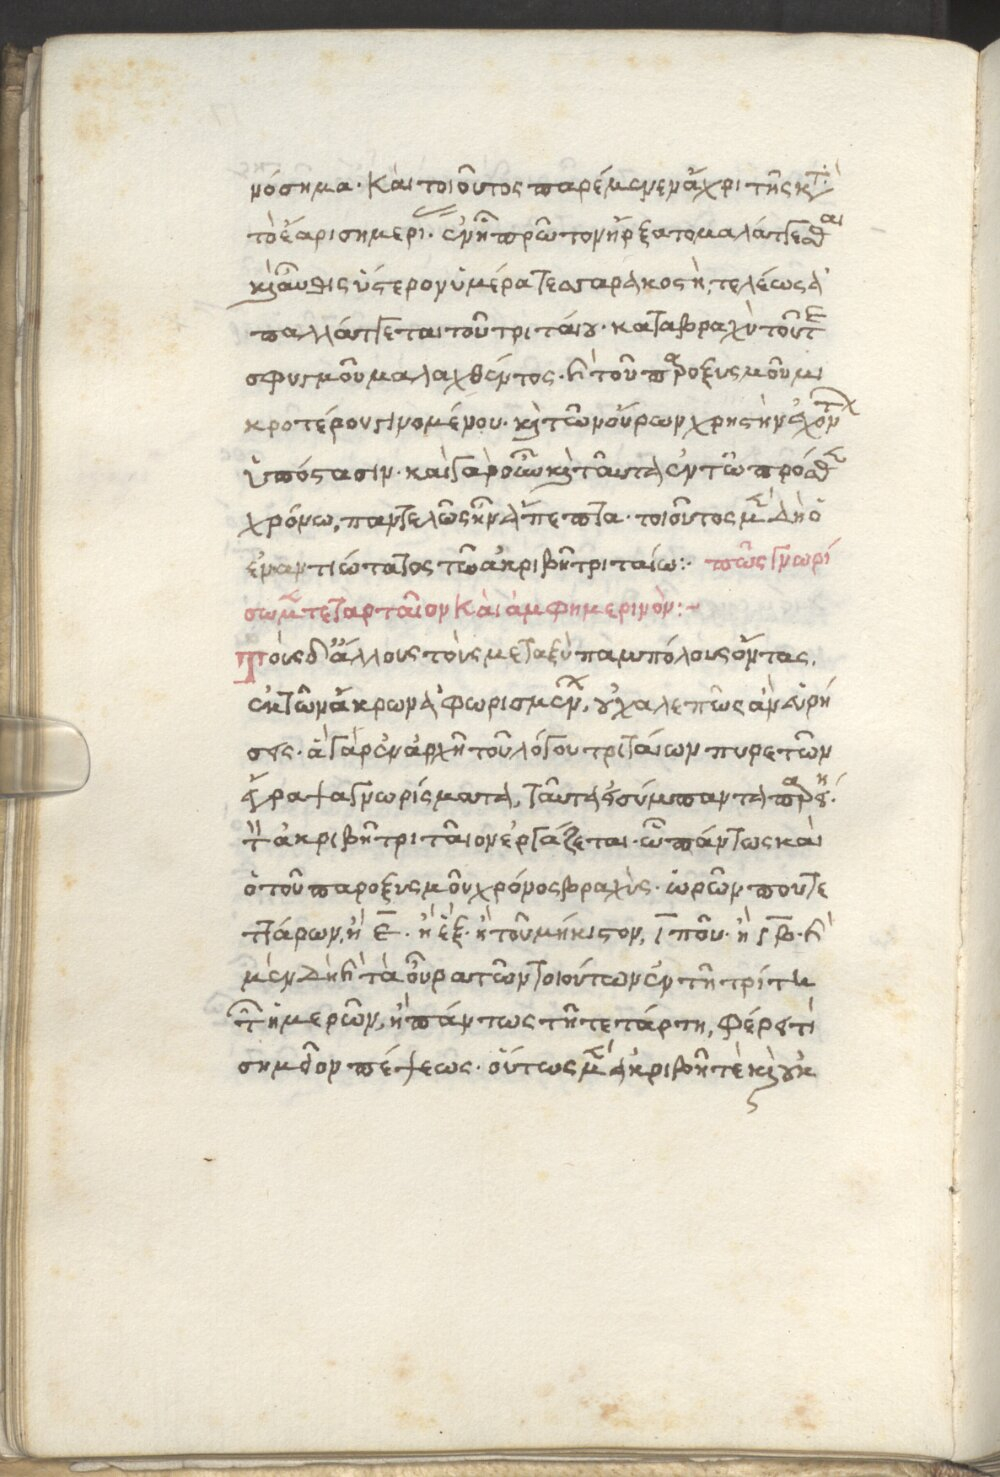 νόσημα· καὶ τοιοῦτος παρέμεινεν ἄχρι τῆς κτ
τὸ ἔαρ ἰσημερί· ἐν ᾗ πρῶτον ἤρξατο μαλάττεσθαι
καὶ αὖθις ὕστερον ἡμέρα τεσσαρακοστῇ, τελέως ἀ
παλλάττεται τοῦ τριταίου· κατὰ βραχὺ τοῦ τε
σφυγμοῦ μαλαχθέντος· καὶ τοῦ παροξυσμοῦ μι
κροτέρου γινομένου· καὶ τῶν οὔρων χρηστὴν ἐχόντ
ὑπόστασιν· καὶ γὰρ οὖν καὶ ταῦτα ἐν τῷ πρόσθεν
χρόνω, παντελῶς ἦν ἄπεπτα· τοιοῦτος μὲν δὴ ὁ
ἐναντιώτατος τῶ ἀκριβῆ τριταίω:· πῶς γνωρί
σωμεν τεταρταῖον καὶ ἀμφημερινόν:~
Τοὺς δ' ἄλλους τοὺς μεταξὺ παμπόλους ὄντας,
ἐκ τῶν ἄκρων ἀφωρισμένων, οὐ χαλεπῶς ἀνευρή
σεις· ἃ γὰρ ἐν ἀρχῇ τοῦ λόγου τριταίων πυρετῶν
ἔγραψα γνωρίσματα, ταῦτα σύμπαντα παρ
τ ἀκριβῆ τριταῖον ἐργάζεται· ὧ πάντως καὶ
ὁ τοῦ παροξυσμοῦ χρόνος βραχύς· ὡρῶν που τε
ττάρων, ἢ ε· ἢ ἓξ· ἢ τοῦ μήκιστον, ι που· ἢ ιβ· καὶ
μὲν δὴ καὶ τὰ οὖρα τῶν τοιούτων ἐν τῆ τρίτη
τῶν ἡμερῶν, ἢ πάντως τῆ τετάρτη, φέρει τὶ
σημεῖον πέψεως· οὕτως μὲν ἀκριβῆ τὲ καὶ οὐκ